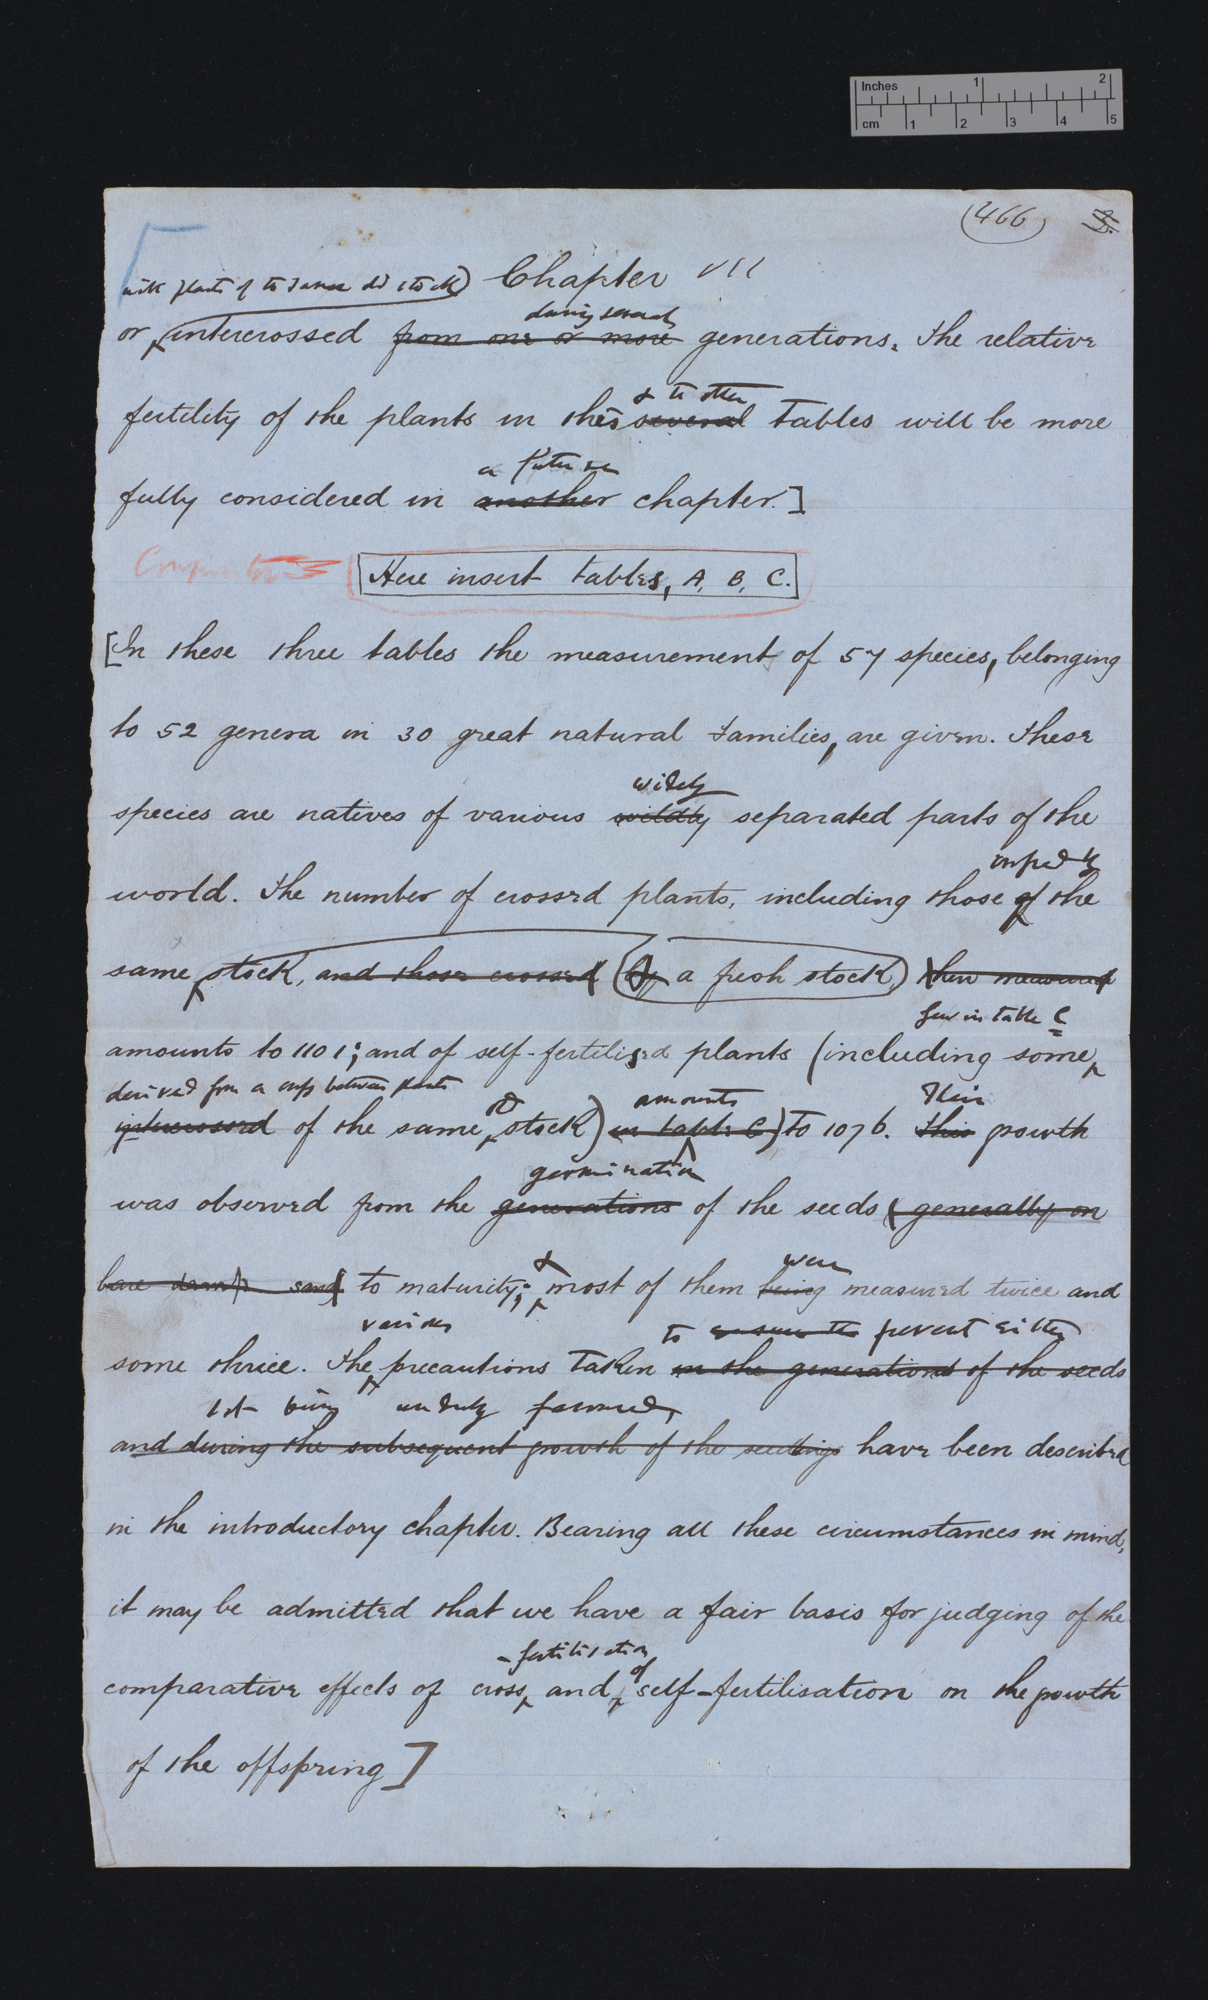 Inches 1 2
cm 1 2 3 4 5
466
Chapter VII
with plants of the same old stock)
during several
or intercrossed from one or more generations. The relative
& the other
fertility of the plants in this several tables will be more
a future
fully considered in another chapter.]
Here insert tables, A, B, C.
[In these three tables the measurements of 57 species, belonging
to 52 genera in 30 great natural families, are given. These
widely
species are natives of various wildly separated parts of the
crossed by
world. The number of crossed plants, including those of the
same stock, and those crossed by a fresh stock,) then measured
few in table C
amounts to 1101; and of self-fertilised plants (including some
derived from a cross between plants
old amounts Their
intercrossed of the same stock) in table C) to 1076. This growth
germination
was observed from the generations of the seeds (generally on
& were
bare damp sand) to maturity; most of them being measured twice and
various to ensure the prevent either
some thrice. The precautions taken in the generations of the seeds
lot being unduly favoured,
and during the subsequent growth of the seedlings have been described
in the introductory chapter. Bearing all these circumstances in mind,
it may be admitted that we have a fair basis for judging of the
-fertilisation of
comparative effects of cross and self-fertilisation on the growth
of the offspring]